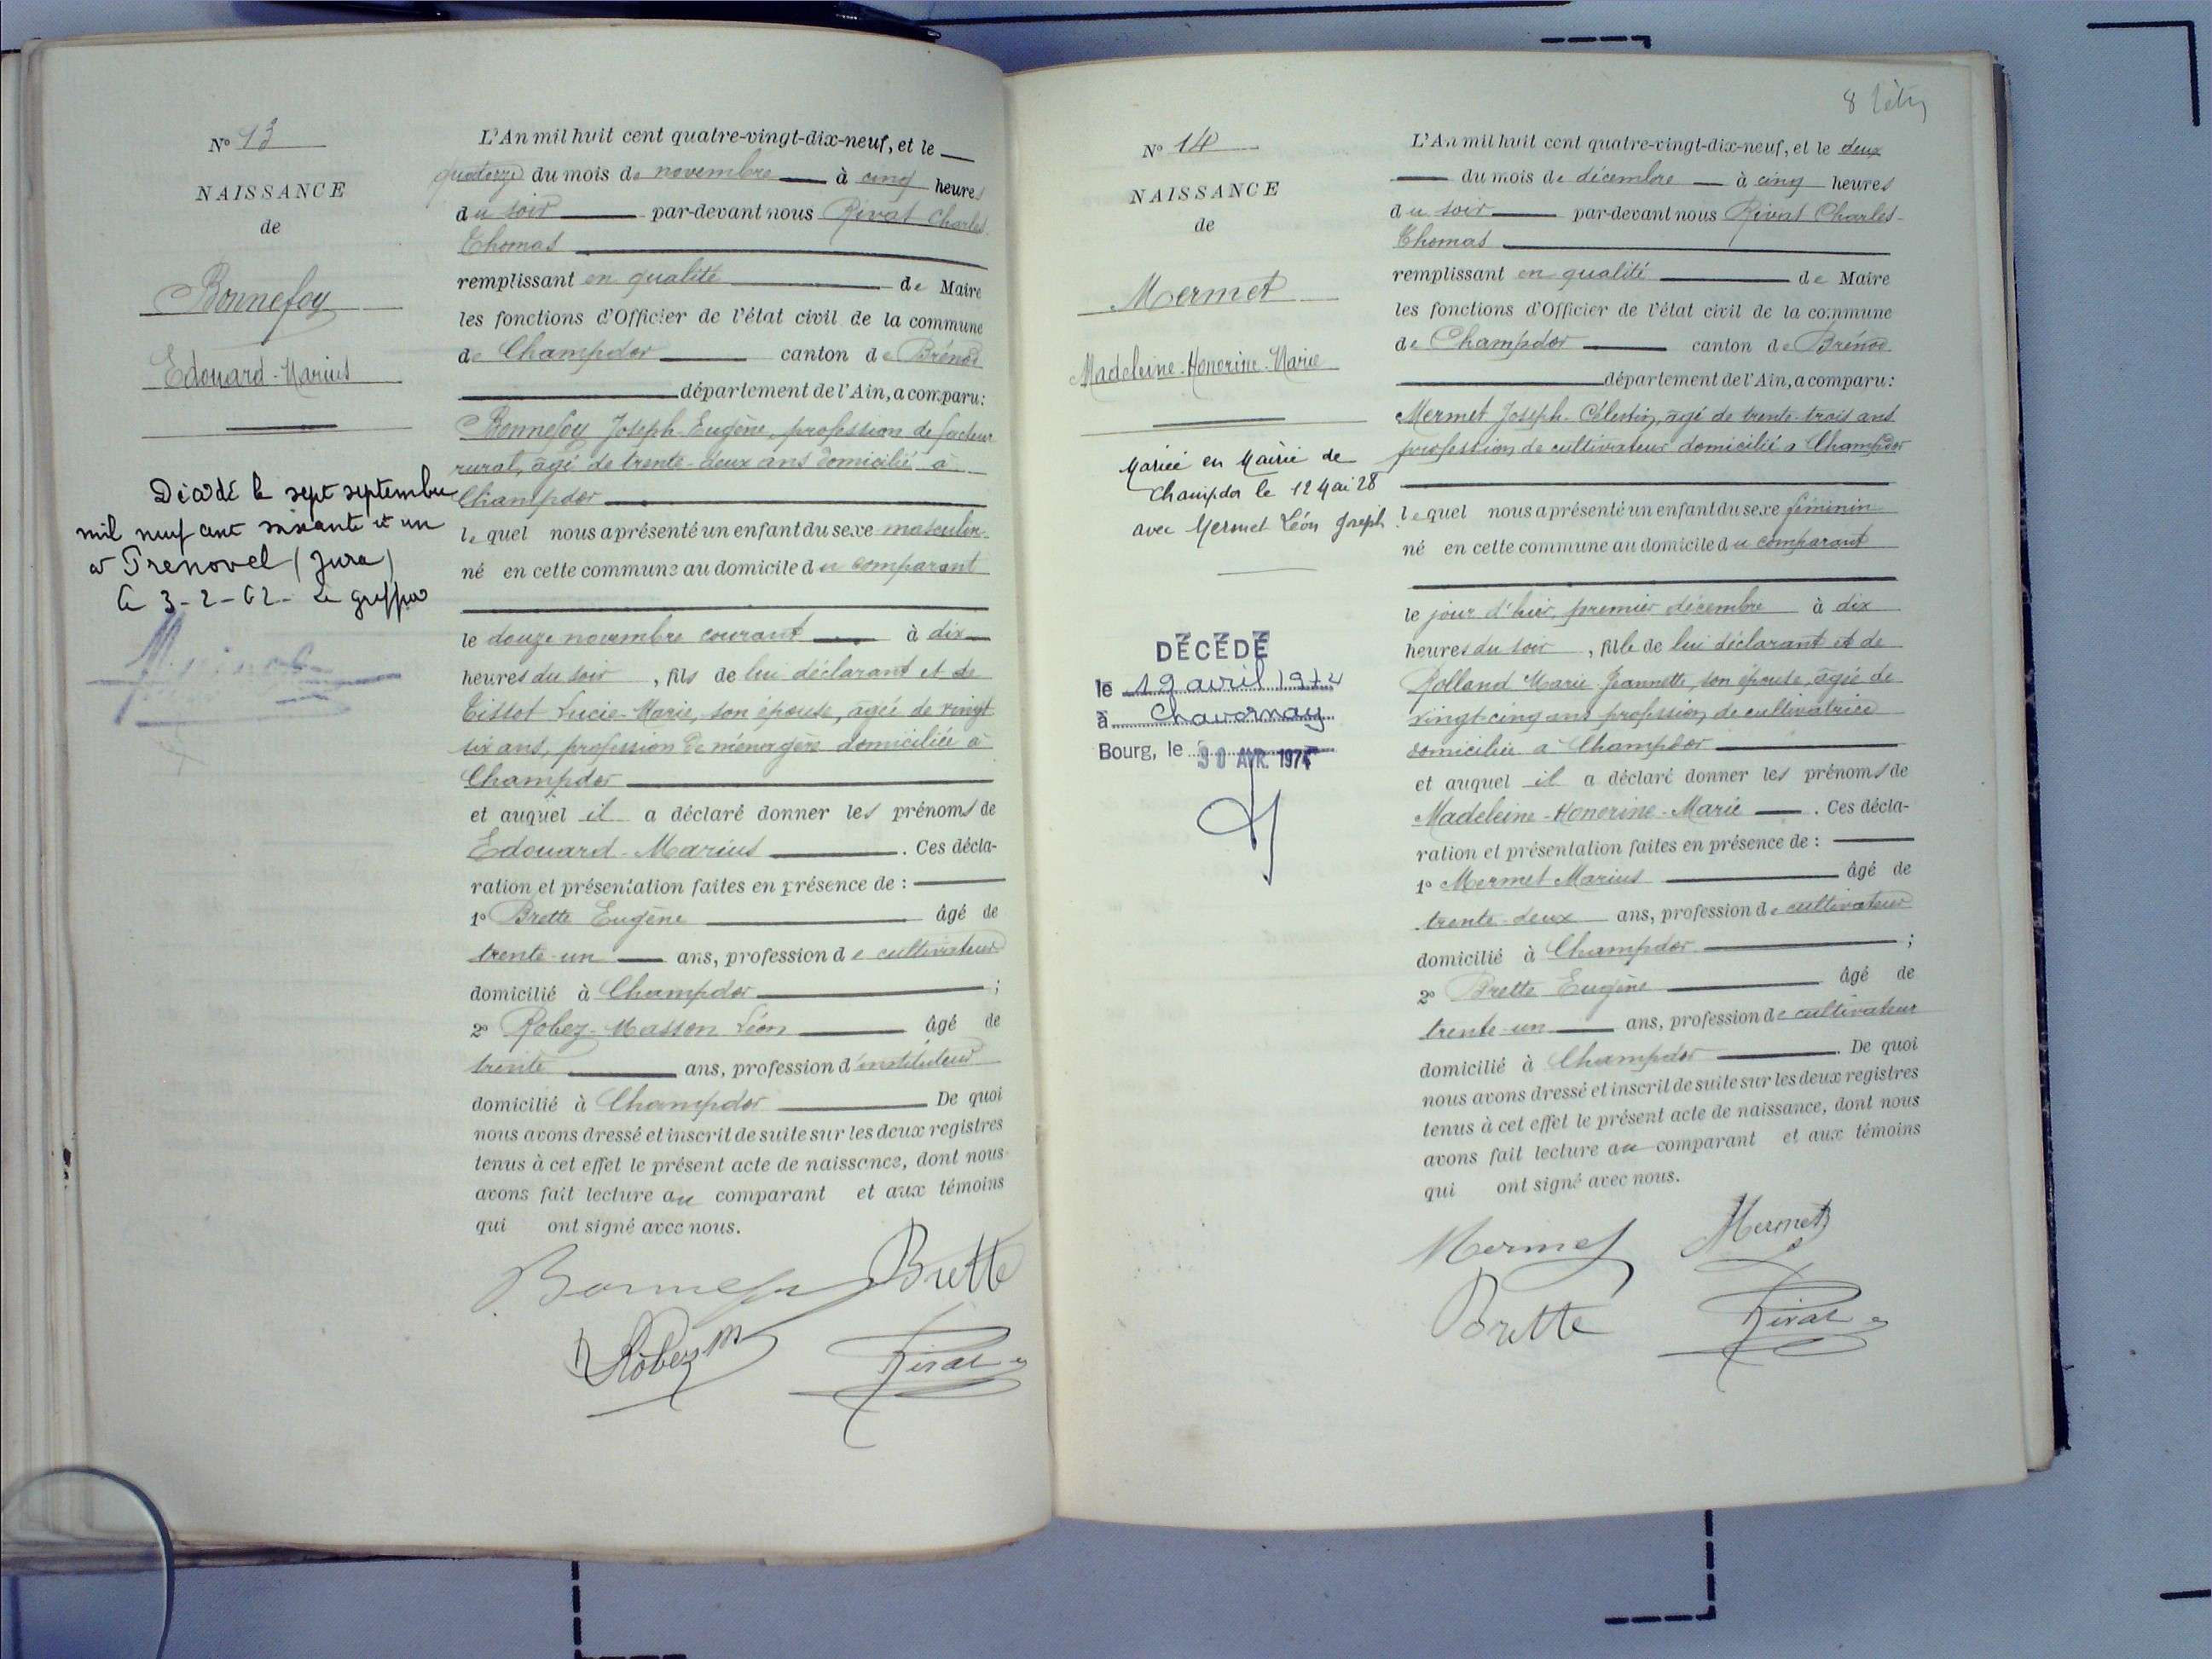 N° 13
NAISSANCE
de
Bonnefoy
Edouard-Marius
Décédé le sept septembre
mil neuf cent soixante et un
à Prénovel (Jura)
Le 3-2-62- Le greffier
L'An mil huit cent quatre-vingt-dix-neuf, et le
quatorze du mois de novembre à cinq heures
du soir par-devant nous Rivat Charles
Thomas
remplissant en qualité de Maire
les fonctions d'Officier de l'état civil de la commune
de Champdor canton de Brénod
département de l'Ain, a comparu:
Bonnefoy Joseph-Eugène, profession de facteur
rural, âgé de trente-deux ans domicilié à
Champdor
lequel nous a présenté un enfant du sexe masculin
né en cette commune au domicile du comparant
le douze novembre courant à dix
heures du soir, fils de lui déclarant et de
Tissot Lucie-Marie, son épouse, âgée de vingt
six ans, profession de ménagère domiciliée à
Champdor
et auquel il a déclaré donner les prénoms de
Edouard-Marius. Ces décla-
ration et présentation faites en présence de :
1° Brette Eugène âgé de
trente-un ans, profession de cultivateur
domicilié à Champdor ;
2° Robez-Masson Léon âgé de
trente ans, profession d'instituteur
domicilié à Champdor De quoi
nous avons dressé et inscrit de suite sur les deux registres
tenus à cet effet le présent acte de naissance, dont nous
avons fait lecture au comparant et aux témoins
qui ont signé avec nous.
Bonnefoy Brette
Robez m Rivat
8 
N° 14
NAISSANCE
de
Mermet
Madeleine-Honorine-Marie
Mariée en Mairie de
Champdor le 12 Mai 28
avec Mermet Léon Joseph
DÉCÉDÉ
le 19 avril 1974
à Chavornay
Bourg, le 30 AVR. 1974
L'An mil huit cent quatre-vingt-dix-neuf, et le deux
du mois de décembre à cinq heures
du soir par-devant nous Rivat Charles-
Thomas
remplissant en qualité de Maire
les fonctions d'Officier de l'état civil de la commune
de Champdor canton de Brénod
département de l'Ain, a comparu:
Mermet Joseph-Célestin, âgé de trente-trois ans
profession de cultivateur domicilié à Champdor
lequel nous a présenté un enfant du sexe féminin
né en cette commune au domicile du comparant
le jour d'hier, premier décembre à dix
heures du soir, fille de lui déclarant et de
Rolland Marie-Jeannette, son épouse, âgée de
vingt-cinq ans profession de cultivatrice
domiciliée à Champdor
et auquel il a déclaré donner les prénoms de
Madeleine-Honorine-Marie. Ces décla-
ration et présentation faites en présence de :
1° Mermet Marius âgé de
trente-deux ans, profession de cultivateur
domicilié à Champdor ;
2° Brette Eugène âgé de
trente-un ans, profession de cultivateur
domicilié à Champdor. De quoi
nous avons dressé et inscrit de suite sur les deux registres
tenus à cet effet le présent acte de naissance, dont nous
avons fait lecture au comparant et aux témoins
qui ont signé avec nous.
Mermet Mermet
Brette Rivat